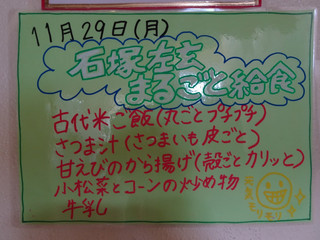 11月29日(月)
石塚左玄
まるごと給食
古代米ご飯(丸ごとプチプチ)
さつま汁(さつまいも皮ごと)
甘えびのから揚げ(殻ごとカリッと)
小松菜とコーンの炒め物
牛乳